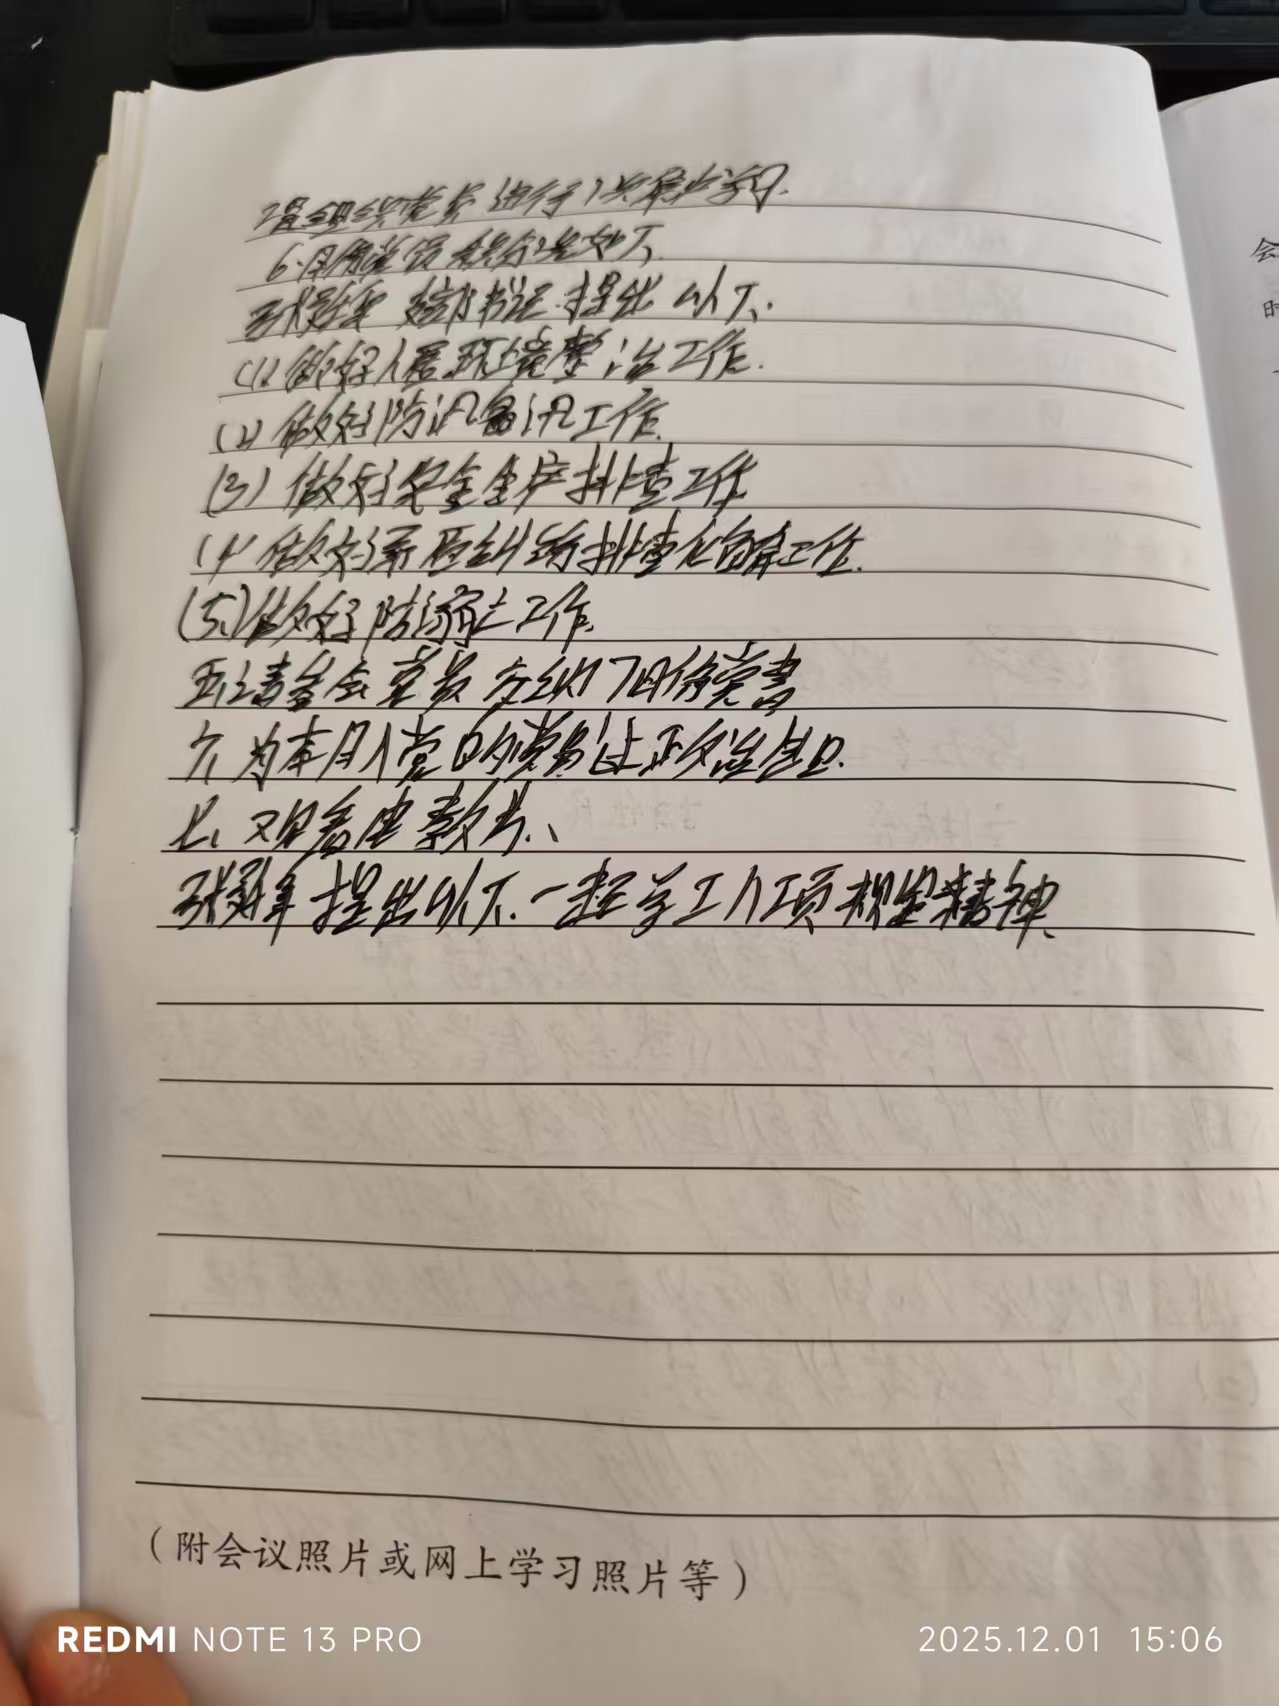 组织党员进行1次集中学习.
6.月 党员积分 如下.
张 年 支部书记 提出以下.
(1)做好人居环境整治工作.
(2)做好防汛备汛工作.
(3)做好安全生产排查工作
(4)做好矛盾纠纷排查化解工作.
(5)做好防溺亡工作.
五、请参会党员交纳7月份党费
六、为本月入党的党员过政治生日.
七、观看电教片、
张 年提出以下.一起学习八项规定精神.
(附会议照片或网上学习照片等)
会
时
REDMI NOTE 13 PRO
2025.12.01 15:06